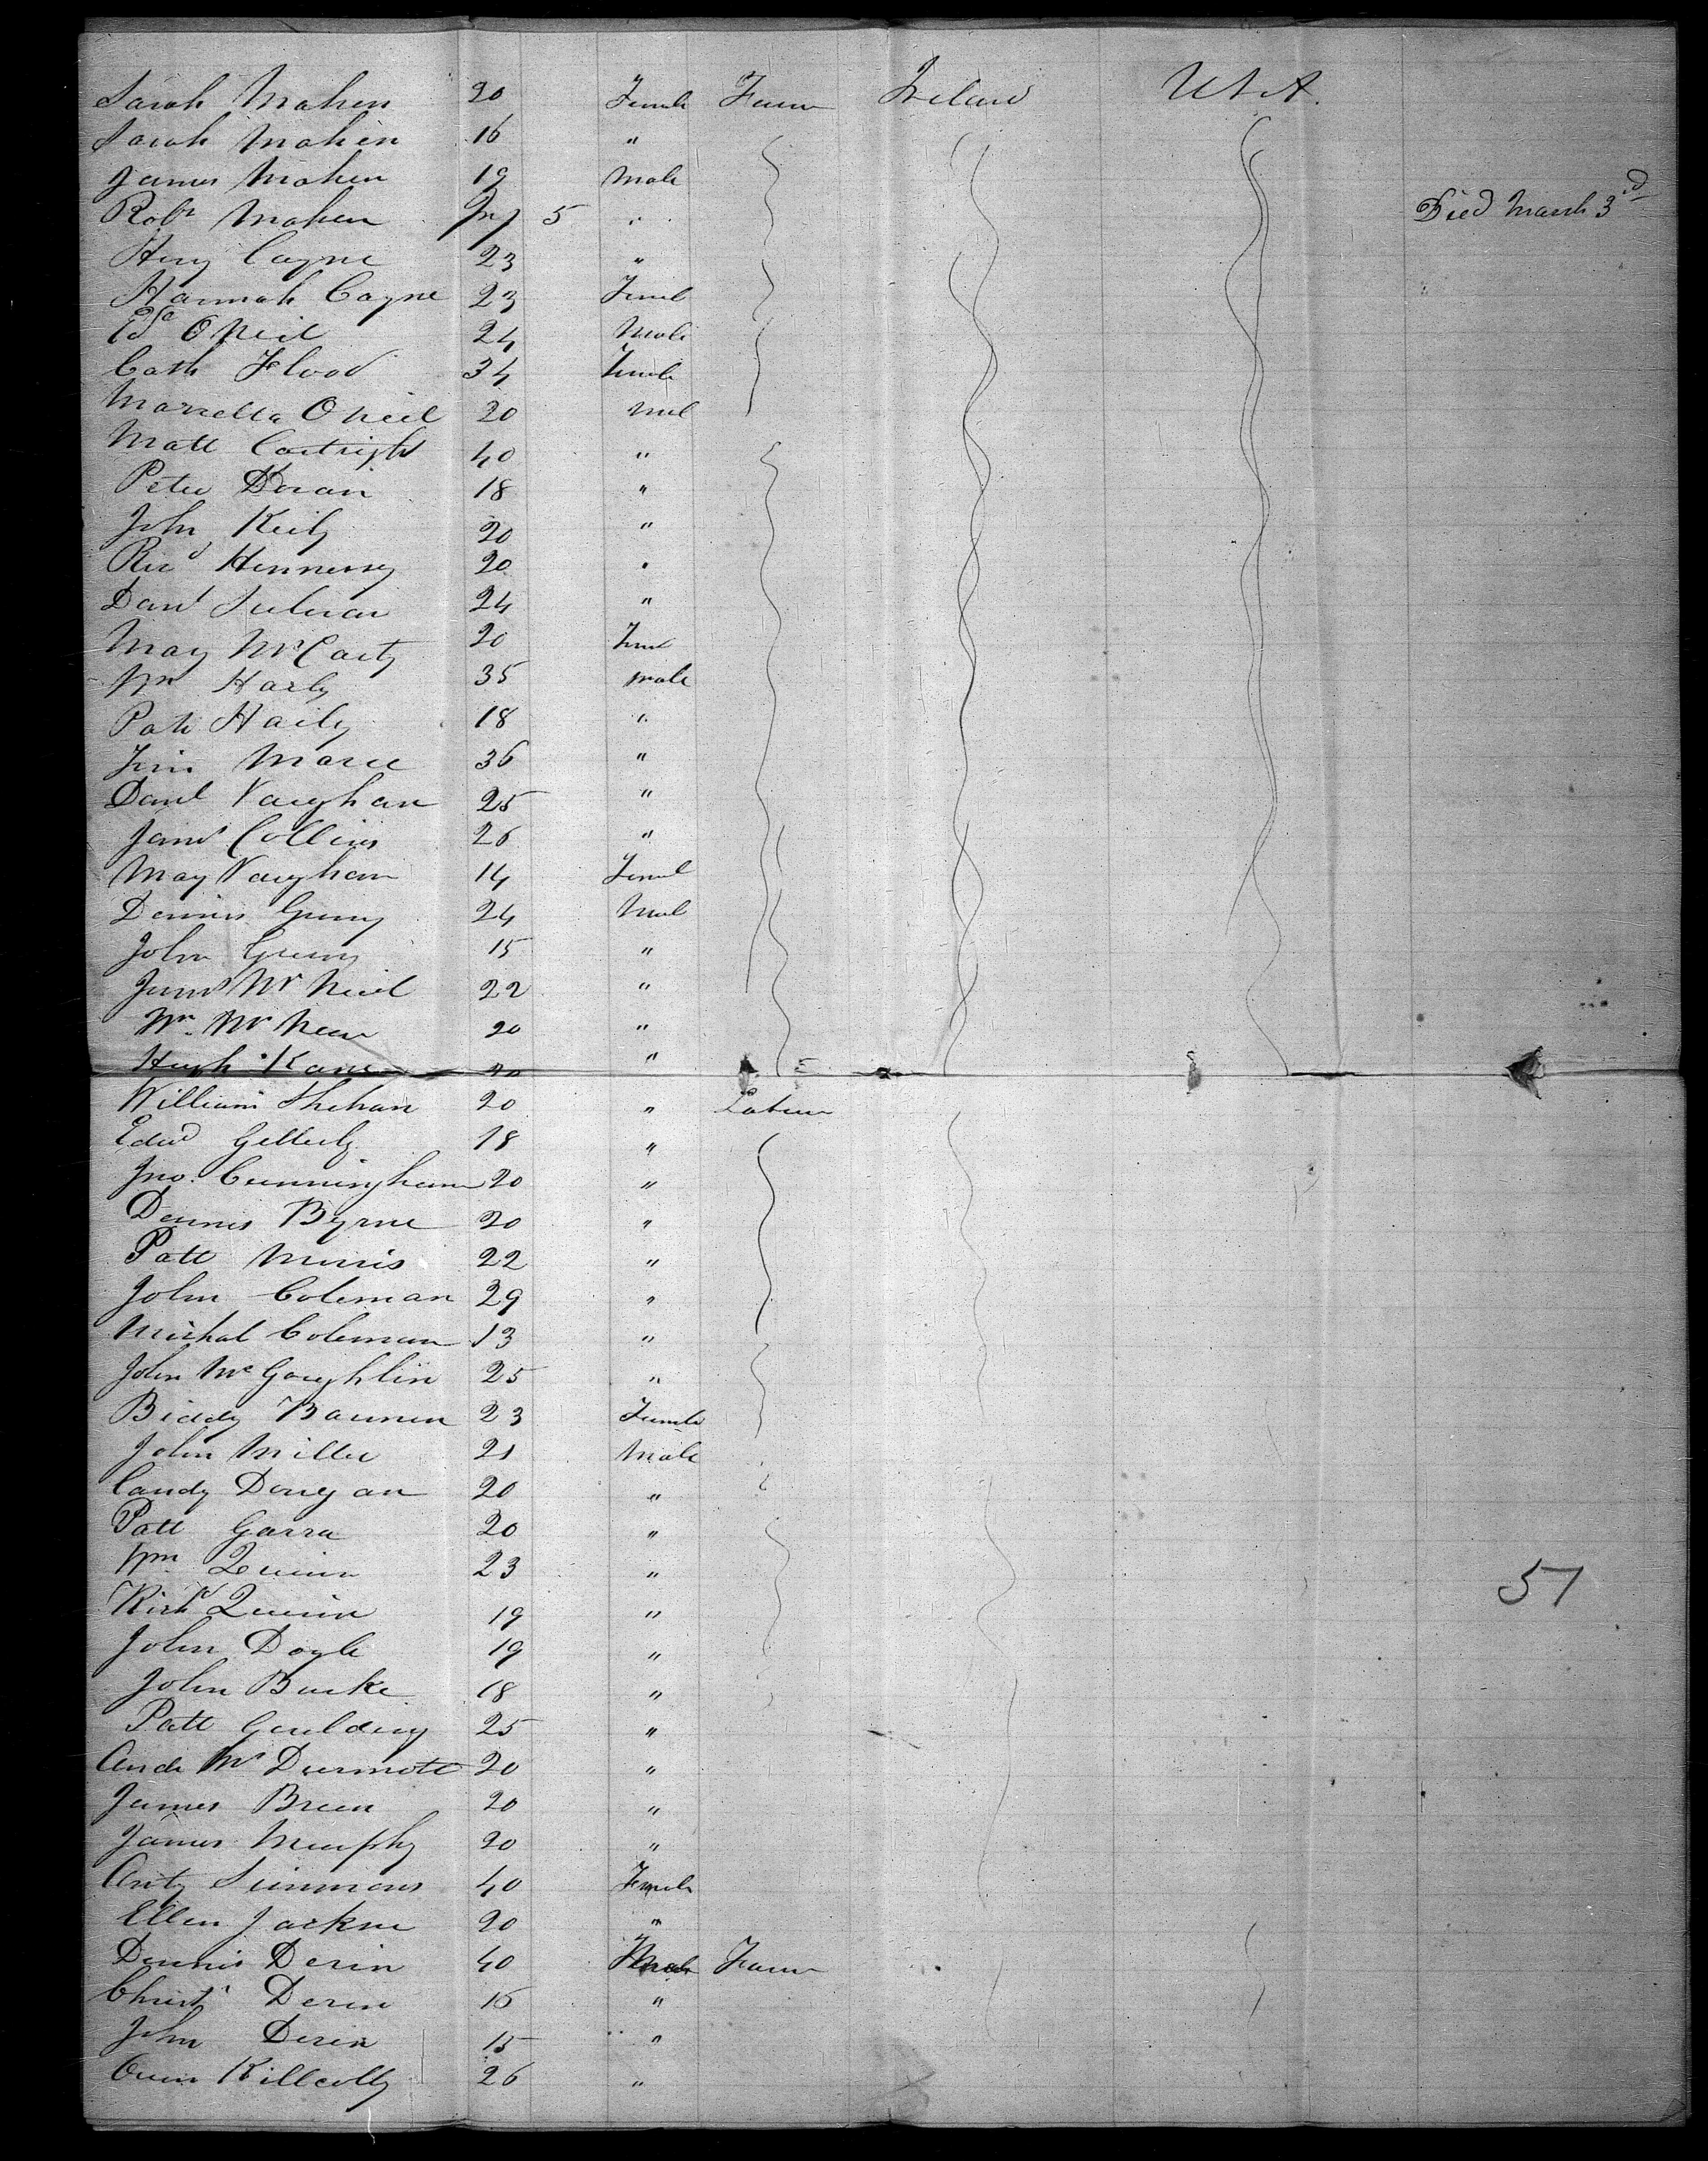 Sarah Mahen 20 Female Farm Ireland U S A.
Sarah Mahen 16 "
James Mahen 19 Male
Robt Mahen Inf 5 " Died March 3rd
Hery Coyne 23 "
Hannah Coyne 23 Femel
O Neil 24 Male
Cath Flood 34 Female
O Neil 20 Mal
Matt Cartright 40 "
Peter Doran 18 "
John Keily 20 "
Ricd Hennessy 20 "
Danl Sulivan 24 "
Mary McCarty 20 Feml
Wm Harly 35 Male
Patt Haily 18 "
36 "
Danl Vaughan 25 "
James Collins 26 "
Mary Vaughan 14 Femel
Dennis 24 Mal
John 15 "
James Mc Neil 22 "
Wm Mc 20 "
Hugh Kane "
William Shehan 20 " Labour
Edwd 18 "
Jno. Cunningham 20 "
Dennis Byrne 20 "
Patt Morris 22 "
John Coleman 29 "
Michal Coleman 13 "
John McGoughlin 25 "
Biddy 23 Female
John Miller 21 Male
20 "
Patt Garra 20 "
Wm Quinn 23 "
57
Richd Quinn 19 "
John Doyle 19 "
John Burke 18 "
Patt Goulding 25 "
Andr Mc Durmott 20 "
James Breen 20 "
James Murphy 20 "
Simmons 40 Female
Ellen 20 "
Dennis Derin 40 Farm
Christ Deren 16 "
John Deren 15 "
Owen 26 "